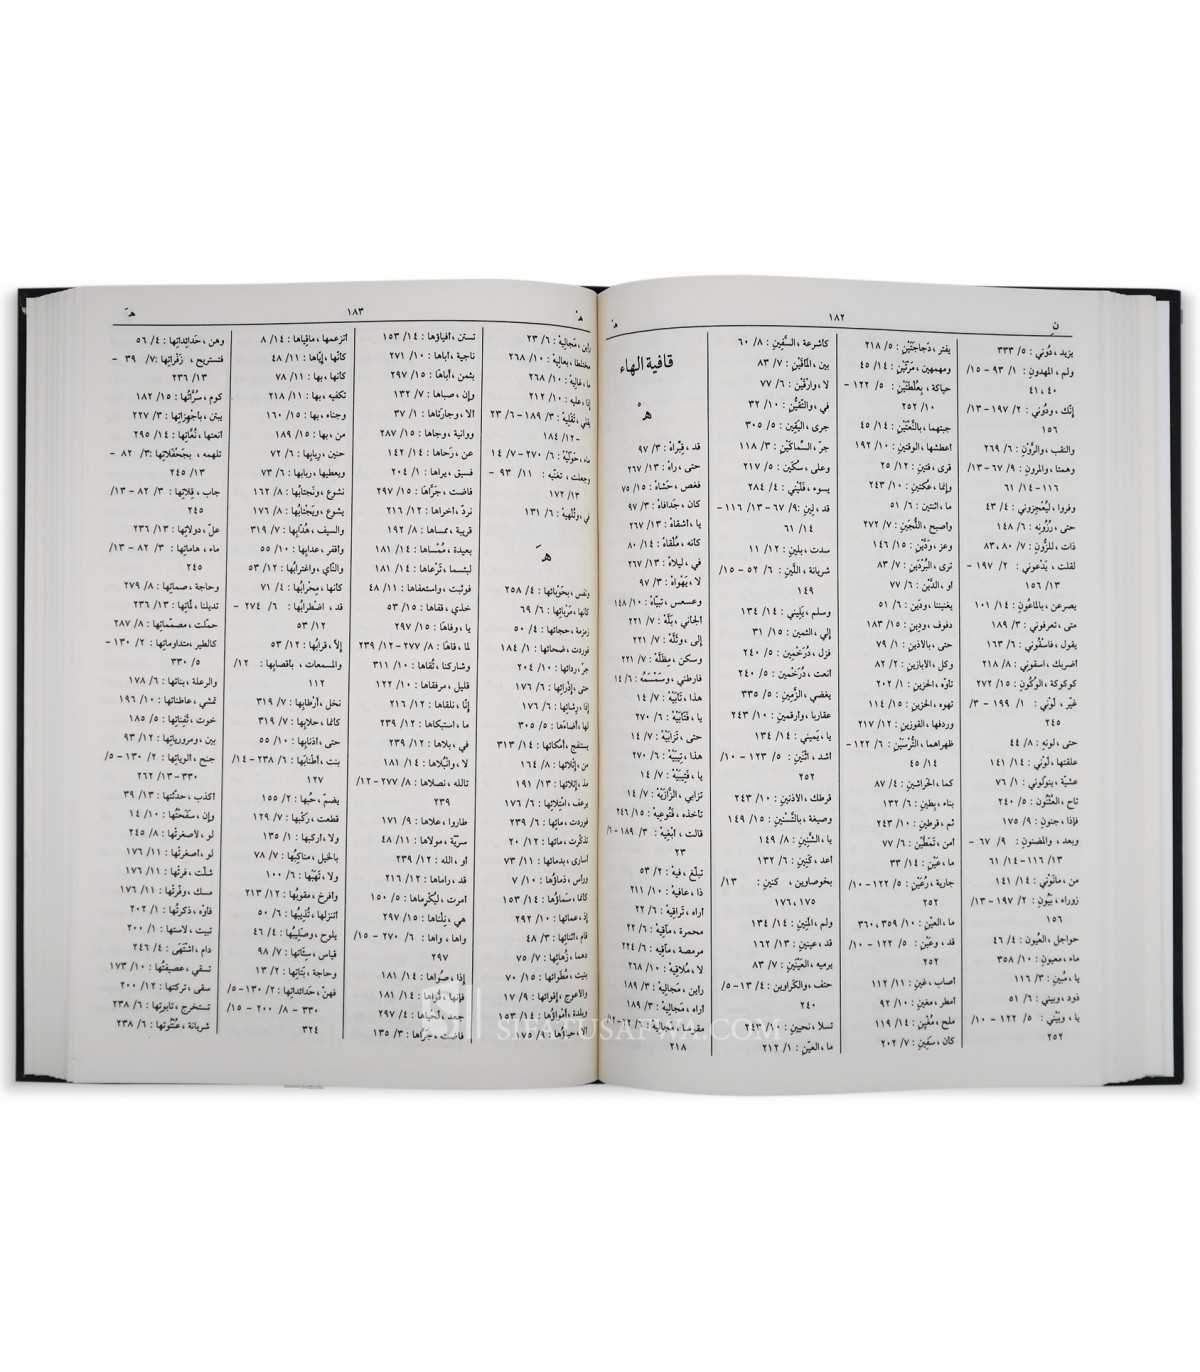 ن
١٨٢
هـْ
يزيد ، دُوني : ٥/ ٣٣٣
ولم ، المهدونِ : ١/ ٩٣ – ١٥/
٤٠ ، ٤١
إنّك ، ودُوني : ٢/ ١٩٧ – ١٣/
١٥٦
والنقب ، والرُّونِ : ٦/ ٢٦٩
وهمتا ، والمرونِ : ٩/ ٦٧ – ١٣/
١١٦ – ١٤/ ٦١
وفروا ، ليُعْجِزوني : ٤/ ٤٣
حتى ، رُزُونِه : ٦/ ١٤٨
ذات ، للزُّونِ : ٧/ ٨٠ ، ٨٣
لقلت ، يَدْعوني : ٢/ ١٩٧ –
١٣/ ١٥٦
يصرعن ، بالماعُونِ : ١٤/ ١٠١
متى ، تعرفوني : ٣/ ١٨٩
يقول ، فاسقُوني : ٦/ ١٦٣
اضربك ، اسقوني : ٨/ ٢١٨
كوكوكة ، الوُكُونِ : ١٥/ ٢٧٢
غيّر ، لوني : ١/ ١٩٩ – ٣/
٢٤٥
حتى ، لونِهِ : ٨/ ٤٤
علقتها ، لَوْني : ١٤/ ١٤١
عشيّة ، يتولوني : ١/ ٧٦
تاح ، العُثْنُونِ : ٥/ ٢٤٠
فإذا ، جنونِ : ٩/ ١٧٥
وبعد ، والمضنونِ : ٩/ ٦٧ –
١٣/ ١١٦ – ١٤/ ٦١
من ، مانَوْني : ١٤/ ١٤١
زوراء ، بَيُونِ : ٢/ ١٩٧ – ١٣/
١٥٦
حواجل ، العُيون : ٤/ ٤٦
ماء ، معيونِ : ١٠/ ٣٥٨
يا ، مُبينِ : ٣/ ١١٦
ذود ، وبيني : ٦/ ٥١
يا ، وبَيْني : ٥/ ١٢٢ – ١٠/
٢٥٢
يفتر ، دَجاجَتَيْنِ : ٥/ ٢١٨
ومهمهين ، مَرْتَيْنِ : ١٤/ ٤٥
حياكة ، بعُلْطَتَيْنِ : ٥/ ١٢٢ –
١٠/ ٢٥٢
جبتهما ، بالنَّعْتَيْنِ : ١٤/ ٤٥
اعطشها ، الوقتينِ : ١٠/ ١٩٢
قرى ، فتينِ : ١٢/ ٢٥
وإنما ، عُكنتينِ : ١٠/ ٢٤٣
ما ، اثنتين : ٦/ ٥١
واصبح ، اللُّجَيْنِ : ٧/ ٢٧٢
وعز ، ودَيْنِ : ١٥/ ١٤٦
ترى ، البُرْدَينِ : ٧/ ٨٣
أو ، الدَّيْنِ : ٦/ ٧٧
يغنيننا ، ودّينِ : ٦/ ٥١
دفوف ، ودِينِ : ١٥/ ١٨٣
حتى ، بالاذينِ : ١/ ٧٩
وكل ، الابازينِ : ٢/ ٨٢
تاوّه ، الحزينِ : ١/ ٢٠٢
تهوه ، الحزينِ : ١٥/ ١١٤
وردفها ، القوزينِ : ١٢/ ٢١٧
ظهراهما ، التُّرْسَيْنِ : ٦/ ١٢٢ –
١٤/ ٤٥
كما ، الخراشينِ : ٤/ ٨٧
بناه ، بطينِ : ٦/ ١٣٢
ثم ، قرطينِ : ١٠/ ٢٤٣
أمن ، نَمَطَيْنِ : ٦/ ٧٧
ما ، عَيْنِ : ١٤/ ٣٣
جارية ، رُعَيْنِ : ٥/ ١٢٢ – ١٠/
٢٥٢
ما ، العيْنِ : ١٠/ ٣٥٩ ، ٣٦٠
قد ، وعَيْنِ : ٥/ ١٢٢ – ١٠/
٢٥٢
أصاب ، غينِ : ١١/ ١١٢
أمطر ، مغينِ : ١٠/ ٩٢
ملح ، مُقْينِ : ١٤/ ١١٩
كان ، سَفِينِ : ٧/ ٢٠٢
كاشرعة ، السَّفِينِ : ٨/ ٦٠
بين ، المَأْقَيْنِ : ٧/ ٨٣
لا ، وارقَيْنِ : ٦/ ٧٧
في ، والتَّقيُّنِ : ١٠/ ٣٢
جرى ، اليَقِينِ : ٥/ ٣٠٥
جرّ ، السِّماكَيْنِ : ٣/ ١١٨
وعلى ، سكّين : ٥/ ٢١٧
يسوء ، فَلَيْني : ٤/ ٢٨٤
قد ، لِينِ : ٩/ ٦٧ – ١٣/ ١١٦ –
١٤/ ٦١
سدت ، بلينِ : ١٢/ ١١
شريانة ، اللِّينِ : ٦/ ٥٢ – ١٥/
١٤٩
وسلم ، يَليني : ١٤/ ١٣٤
إلي ، الثمين : ١٥/ ٣١
فزل ، دُرَخْمِينِ : ٥/ ٢٤٠
انعت ، دُرَخْمين : ٥/ ٢٤٠
يغضي ، الزَّمِينِ : ٥/ ٣٣٥
عقاربا ، وارقمينِ : ١٠/ ٢٤٣
يا ، يَميني : ١٤/ ١٣٤
اشد ، اثْنَينِ : ٥/ ١٢٣ – ١٠/
٢٥٢
قرطك ، الاذنينِ : ١٠/ ٢٤٣
وصيغة ، بالتَّسْنينِ : ١٥/ ١٤٩
يا ، السِّنينِ : ٨/ ١٤٩
اعد ، كَنِينِ : ٦/ ١٣٢
بخوصاوين ، كنينِ : ١٣/
١٧٥ ، ١٧٦
ولم ، المَنِينِ : ١٤/ ١٣٤
قد ، عينينِ : ١٣/ ١٦٢
يرميه ، العَيْنَيْنِ : ٧/ ٨٣
حتف ، والكراوينِ : ٤/ ١٣ – ٥/
٢٤٠
تسلا ، نحيينِ : ١٠/ ٢٤٣
ما ، العيّنِ : ١/ ٢١٢
قافية الهاء
هـْ
قد ، قِيْراهْ : ٣/ ٩٧
حتى ، راهْ : ١٣/ ٢٦٧
فغص ، حَشاهْ : ١٥/ ٧٥
كان ، جَدافاهْ : ٣/ ٩٧
يا ، أشقاهْ : ١٣/ ٢٦٧
كأنه ، مُلْقاهْ : ١٤/ ٨٠
في ، ليلاهْ : ١٣/ ٢٦٧
لا ، يَهْواهْ : ٣/ ٩٧
وعسعس ، تبيّاهْ : ١٠/ ١٤٨
الجاني ، بَلَّهْ : ٧/ ٢٢١
إلى ، وثَلَّهْ : ٧/ ٢٢١
وسكن ، مِظَلَّهْ : ٧/ ٢٢١
فارطني ، وسَمْسَمُهْ : ٦/ ١٤
هذا ، تَابَيَهْ : ٧/ ١٤
يا ، قَتَابَيَهْ : ٦/ ٢٧٠
حتى ، تَرَابَيَهْ : ٧/ ١٤
هذا ، تِيبَيَهْ : ٦/ ٢٧٠
يا ، قَتِيبَيَهْ : ٧/ ١٤
ترابي ، الرَّازِيَهْ : ٧/ ١٤
تأخذه ، فَتُوعِيهْ : ١٥/ ٢٤٦
قالت ، ابْغِيهْ : ٣/ ١٨٩ – ٦/
٢٣
تبلّغ ، فيهْ : ٢/ ٥٣
ذا ، عافيهْ : ١٠/ ٢١١
أراه ، تراقِيهْ : ٦/ ٢٢
محمرة ، مآقِيهْ : ٦/ ٢٢
مرمصة ، مآقيه : ٦/ ٢٢٤
لا ، مُلاقِيهْ : ١٠/ ٢٦٨
رابن ، مَجالِيهْ : ٣/ ١٨٩
أراه ، مَجالِيهْ : ٣/ ١٨٩
مقوسا ، مَجالِيهْ : ٦/ ٢٢
٢١٨
هـْ
١٨٣
هـَ
رابن ، مَجالِيهْ : ٦/ ٢٣
مختلطا ، بعالِيهْ : ١٠/ ٢٦٨
ما ، عالِيهْ : ١٠/ ٢٦٨
إذا ، عليه : ١٠/ ٢١٢
يلني ، تَقْلِيهْ : ٣/ ١٨٩ – ٦/ ٢٣
– ١٢/ ١٨٤
ماء ، حَوَلَيَهْ : ٦/ ٢٧٠ – ٧/ ١٤
وجعلت ، تغنيه : ١١/ ٩٣ –
١٣/ ١٧٢
في ، وتُلْهيهْ : ٦/ ١٣١
هـَ
ونفس ، بحَوْبائِها : ٤/ ٢٥٨
كأنها ، حَرْبائِها : ٦/ ٦٩
زمزمة ، حجائها : ٤/ ٥٠
فوردت ، ضحائها : ١/ ١٨٤
جرّ ، ردائِها : ١٠/ ٢٠٤
حتى ، إدْرائِها : ٦/ ١٧٦
إذا ، رشائِها : ٦/ ١٧٦
لها ، أضاءَها : ٥/ ٣٠٥
يستفج ، أمْكائها : ١٤/ ٣١٣
من ، إثلائها : ٨/ ١٦٤
مذ ، إتلائِها : ١٣/ ١٩١
برغف ، امْتِلائِها : ٦/ ١٧٦
فوردت ، مائِها : ٦/ ٢٣٩
تذكّرت ، مائها : ١٢/ ٢٠
أسارى ، بدمائها : ١١/ ٧٣
وراس ، ذماؤُها : ١٠/ ٧
كأنما ، سَماؤُها : ١٤/ ١٥٣
إذ ، عمائها : ١٠/ ٢٩٢
قام ، أثنائِها : ٣/ ٤٨
دهما ، زُهائِها : ٧/ ٧٥
بنيت ، مُطوائها : ١٥/ ٧٠
والأعرج ، إقوائِها : ٩/ ١٧
وبلدة ، أضْواؤُها : ١٤/ ١٥٣
ألا ، حِواؤُها : ٩/ ١٧٥
تستن ، أفياؤها : ١٤/ ١٥٣
ناجية ، أباها : ١٠/ ٢٧١
بثمن ، أباهَا : ١٥/ ٢٩٧
وإن ، صباها : ٧/ ١٣٢
ألا ، وجارَتاها : ١/ ٣٧
ووانية ، وجاها : ١٥/ ٢٨٧
عن ، رَحاها : ١٤/ ١٤٢
فسيق ، يراها : ١/ ٢٠٤
فاضت ، جَرَّاهَا : ١٥/ ٢٩٧
نردّ ، أخراها : ١٢/ ٢١٦
قرية ، ممساها : ٨/ ١٩٢
بعيدة ، مُمْساها : ١٤/ ١٨١
لبئسما ، تَرْعاها : ١٤/ ١٨١
فوثبت ، واستعفاها : ١١/ ٤٨
خلدي ، قفاها : ١٥/ ٥٣
يا ، وفاها : ١٥/ ٢٩٧
لما ، قاها : ٨/ ٢٧٧ – ١٢/ ٢٣٩
وشاركنا ، تُقاها : ١٠/ ٣١١
قليل ، مرفقاها : ١٠/ ١٢٢
إنّا ، نلقاها : ١٢/ ٢١٦
ما ، استبكاها : ١٢/ ٢٣٩
في ، بلاها : ١٢/ ٢٣٩
لا ، والبُلاها : ١٤/ ١٨١
تالله ، نصلاها : ٨/ ٢٧٧ – ١٢/
٢٣٩
طاروا ، علاها : ٩/ ١٧١
سريّة ، مولاها : ١١/ ٤٨
أو ، الله : ١٢/ ٢٣٩
قد ، راماها : ١٢/ ٢١٦
أمرت ، ليُكْرماها : ٥/ ١٥٠
هي ، نِلْناها : ١٥/ ٢٩٧
واها ، واها : ٦/ ٢٧٠ – ١٥/
٢٩٧
إذا ، صُواها : ١٤/ ١٨١
فإنها ، نُواها : ١٤/ ١٨١
جمد ، لحياها : ٤/ ٢٩٧
فاضت ، جَرَّاها : ٣/ ١٣٥
أتزعمها ، ماقياها : ١٤/ ٨
كأنّها ، إيّاها : ١١/ ٤٨
كانها ، بها : ١١/ ٧٨
تكفيه ، بها : ١١/ ٢١٨
وجناه ، بها : ١٥/ ١٦٠
من ، بها : ١٥/ ١٨٩
حنين ، ربابِها : ٦/ ٧٢
ويعطيها ، ربابها : ٦/ ٧٣
نشوع ، ونَجتابُها : ٨/ ١٦٢
يشوع ، ويَجْتابُها : ٨/ ١٧٦
والسيف ، هُدَّابِها : ٧/ ٣١٩
وأقفر ، عدابِها : ١٠/ ٥٥
والنّأي ، واغترابُها : ١٢/ ٥٣
كأنّها ، مِحْرابُها : ٤/ ٧١
قد ، اضْطرابُها : ٦/ ٢٧٤ –
١٢/ ٥٣
إلّا ، قرابُها : ١٢/ ٥٣
والمسمعات ، بأقصابِها : ١٢/
١١٢
نخل ، أرْطابِها : ٧/ ٣١٩
كأنما ، حلابِها : ٧/ ٣١٩
حتى ، أذنابِها : ١٠/ ٥٥
بنت ، أطنابُها : ٦/ ٢٣٨ – ١٤/
١٢٧
يضمّ ، حُبها : ٢/ ١٥٥
قطعت ، رَكْبِها : ٧/ ١٢٩
ولا ، اركبها : ١/ ١٣٥
بالخيل ، مناكِبُها : ٧/ ٧٨
ولا ، نَهْبَها : ٦/ ١٠٠
وأفرخ ، مقوبُها : ١٢/ ٢١٣
أتنزلها ، تُذيبُها : ٦/ ٥٠
يلوح ، وصَليبُها : ٤/ ٤٦
قياس ، سِتَاتُها : ٧/ ٩٨
وحاجة ، بَتَاتِها : ٢/ ١٣
فهنّ ، حَدَائداتِها : ٢/ ١٣٠ – ٥/
٣٣٠ – ٨/ ٢٠٠ – ١٥/
٣٢٤
وهن ، حَدَائِداتِها : ٤/ ٥٦
فتستريح ، زَفْراتِها : ٧/ ٣٩ –
١٣/ ٢٣٦
كوم ، سُرَّاتُها : ١٥/ ١٨٢
يبتن ، بأجْهِزاتِها : ٣/ ٢٢٧
أنعتها ، نُعَّاتِها : ١٤/ ٢٩٥
تلهمه ، بجَحْفَلاتِها : ٣/ ٨٢ –
١٣/ ٢٤٥
جاب ، قِلاتِها : ٣/ ٨٢ – ١٣/
٢٤٥
علّ ، دولاتِها : ١٣/ ٢٣٦
ماء ، هاماتِها : ٣/ ٨٢ – ١٣/
٢٤٥
وحاجة ، صماتِها : ٨/ ٢٧٩
تديلنا ، لمَّاتِها : ١٣/ ٢٣٦
حملت ، مصمّماتِها : ٨/ ٢٨٧
كالطير ، متداوماتِها : ٢/ ١٣٠ –
٥/ ٣٣٠
والرعلة ، بناتِها : ٦/ ١٧٨
تمشي ، عاطناتِها : ١٠/ ١٩٦
خوت ، ثَفِناتِها : ٥/ ١٨٥
بين ، ومرورياتِها : ١٢/ ٩٣
جنح ، ألوياتِها : ٢/ ١٣٠ – ٥/
٣٣٠ – ١٣/ ٢٦٢
أكذب ، حدثتها : ١٣/ ٣٩
وإن ، سَفَحَتُها : ١٠/ ١٤
لو ، لأصغرتُها : ٨/ ٢٤٥
لو ، أصغرتُها : ١١/ ١٧٦
شلّت ، فرتُها : ١١/ ١٧٦
مسك ، وفْرتُها : ١١/ ١٧٦
فأوّه ، ذكرتُها : ١/ ٢٠٢
تبيت ، لاستها : ١/ ٢٠٠
دام ، اشتَهَى : ٤/ ٢٤٦
تسقي ، عصيفتُها : ١٠/ ١٧٣
سقى ، تركتها : ١٢/ ٢٠٠
تستخرج ، تابوتها : ٦/ ٢٣٨
شريانة ، عُنْتُوتِها : ٦/ ٢٣٨
SIFATUSAFWA.COM